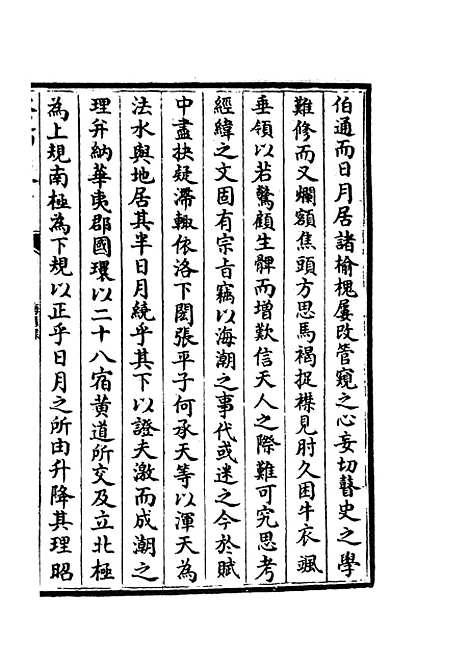 伯通而日月居諸榆槐屢改管窺之心妄切瞽史之學
難修而又爛額焦頭方思馬褐捉襟見肘久困牛衣颯
垂領以若驚顧生髀而增歎信天人之際難可究思考
經緯之文固有宗㫖竊以海潮之事代或迷之今於賦
中盡抉疑滯輙依洛下閎張平子何承天等以渾天為
法水與地居其半日月繞乎其下以證夫激而成潮之
理幷納華夷郡國環以二十八宿黄道所交及立北極
為上規南極為下規以正乎日月之所由升降其理昭